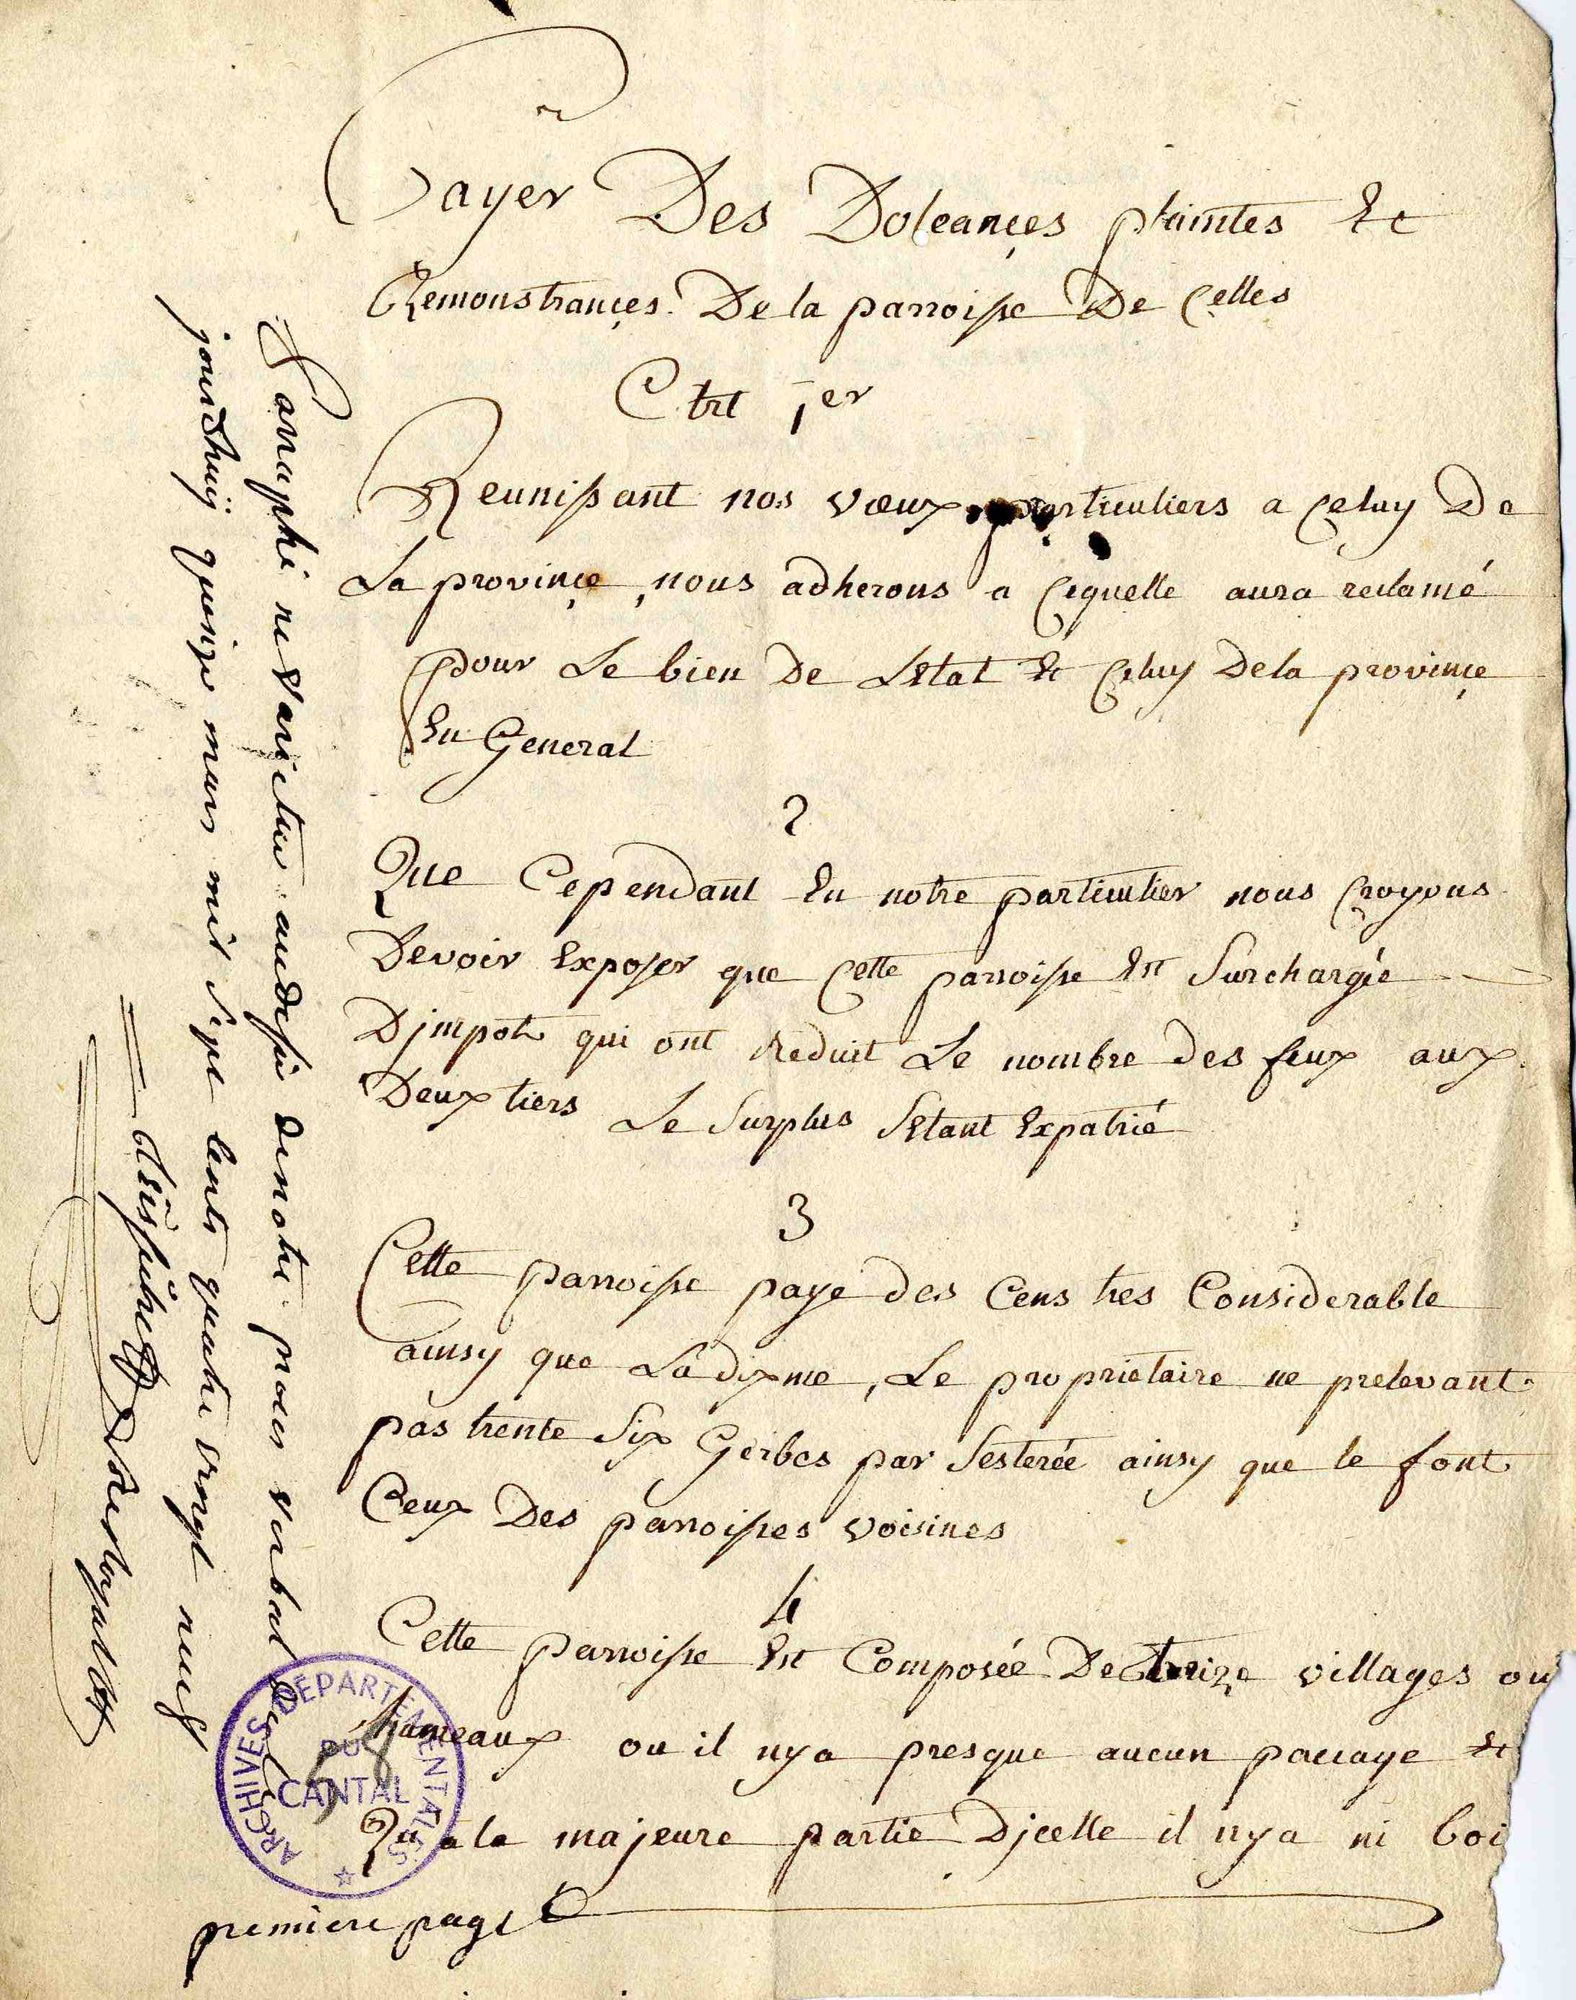 Cayer Des Doleançes plaintes Et
Remonstrançes. De la parroisse De Celles
Art 1er
Reunissant nos vœux particuliers a Celuy De
La provinçe, nous adherons a Cequelle aura reclamé
pour Le bien De Letat Et Celuy Dela provinçe
En General
2
Que Cependant En notre particulier nous Croyons
Devoir Exposer que Cette parroisse Est Surchargée
Djmpots qui ont Reduit Le nombre des feux aux
Deux tiers Le Surplus Setant Expatrié
3
Cette parroisse paye des Cens tres Considerable
ainsy que La dixme, Le proprietaire ne prelevant
pas trente Six Gerbes par Sesterée ainsy que le font
Ceux Des parroisses voisines
4
Cette parroisse Est Composée De treize villages ou
hameaux ou il nya presque aucun pacage Et
Qu a la majeure partie Djcelle il nya ni boi
premiere page
Parraphé ne varietur audesir denotre proces verbal de ce
jourdhuy quinze mars mil sept cents quatre vingt neuf
ARCHIVES DÉPARTEMENTALES
DU
CANTAL
58